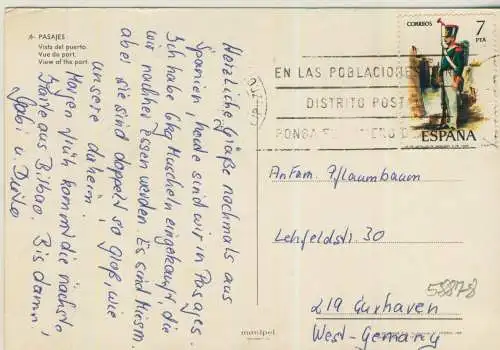 6- PASAJES
Vista del puerto.
Vue du port.
View of the port.
Herzliche Grüße nochmals aus
Spanien, heute sind wir in Pasajes.
Ich habe 6kg Muscheln eingekauft, die
wir nachher essen werden. Es sind Miesm.
aber sie sind doppelt so groß, wie
unsere daheim.
Morgen früh kommt die nächste
Karte aus Bilbao. Bis dann,
Gabi u.
CORREOS
7
PTA
ESPAÑA
EN LAS POBLACIONES
DISTRITO POST
PONGA
An Fam. Pflaumbaum
Lehfeldstr. 30
219 Cuxhaven
West-Germany
55878